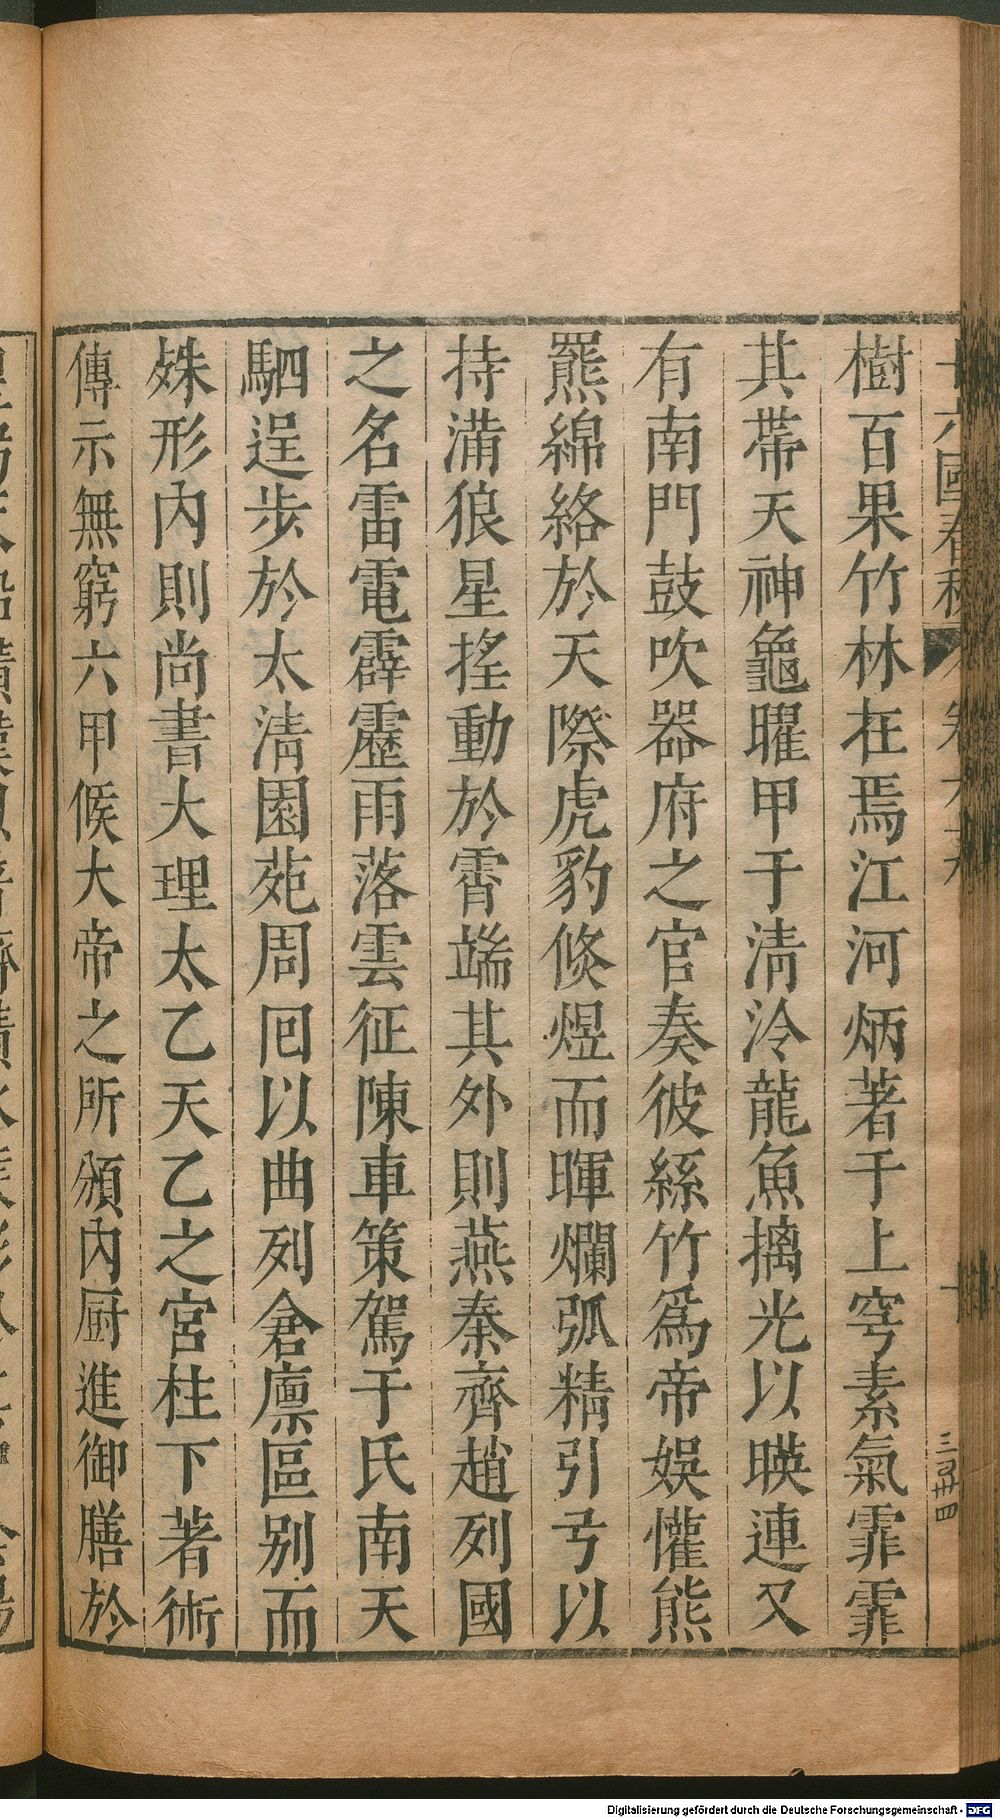 樹百果竹林在焉江河炳著于上穹素氣霏霏
其帶天神龜曜甲于清泠龍魚摛光以暎連又
有南門鼓吹器府之官奏彼絲竹爲帝娛懽熊
羆綿絡於天際虎豹倏煜而暉爛弧精引弓以
持滿狼星搖動於霄端其外則燕秦齊趙列國
之名雷電霹靂雨落雲征陳車策駕于氐南天
駟逞步於太清園苑周囘以曲列倉廪區别而
殊形内則尚書大理太乙天乙之宮柱下著術
傳示無窮六甲候大帝之所頒内厨進御膳於
Digitalisierung gefördert durch die Deutsche Forschungsgemeinschaft - DFG